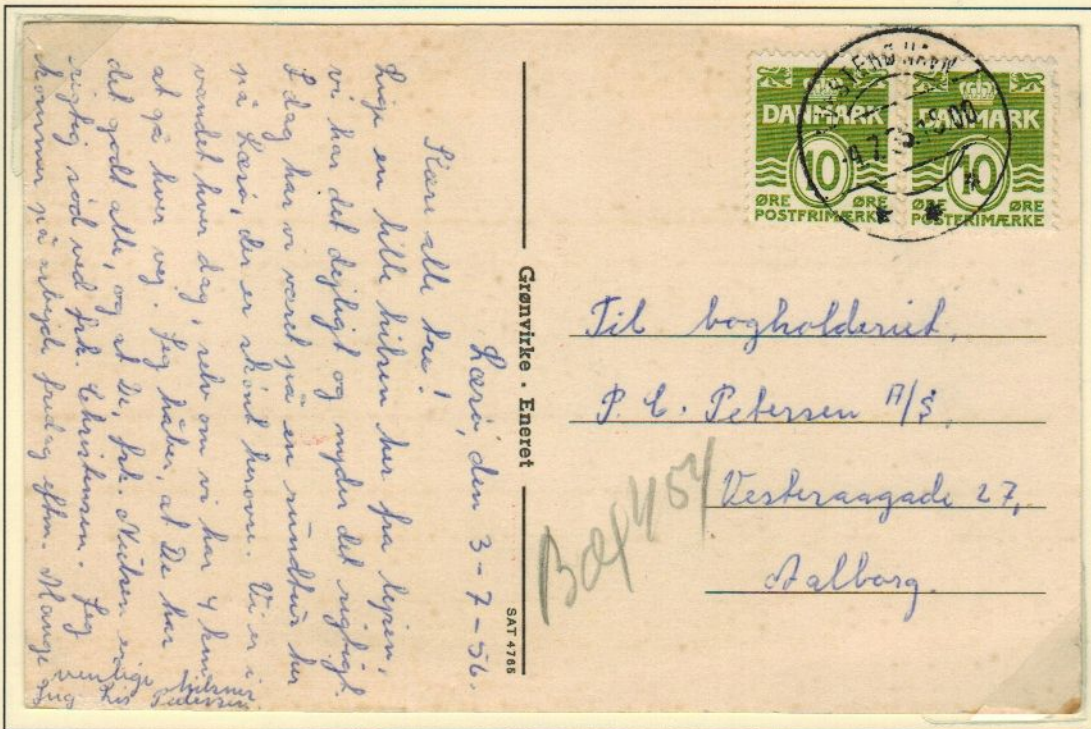 Læsø, den 3-7-56.
Kære alle tre!
Lige en lille hilsen her fra lejren,
vi har det dejligt og nyder det rigtigt.
I dag har vi været på en rundtur her
på Læsø, der er skønt herovre. Vi er i
vandet hver dag, selv om vi har 4 km
at gå hver vej. Jeg håber, at De har
det godt alle, og at De, frk. er
rigtig sød ved frk. Christensen. Jeg
kommer på arbejde fredag eftm. Mange
venlige hilsner
Lis Pedersen
Grønvirke . Eneret
SAT 4765
DANMARK
10
ØRE
POSTFRIMÆRKE
DANMARK
10
ØRE ØRE
POSTFRIMÆRKE
Til bogholderiet,
P. C. Petersen A/S,
Vesteraagade 27,
Aalborg.